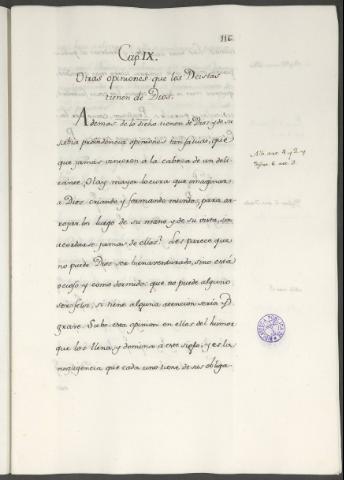 116
Cap. IX.
Otras opiniones que los Deistas
tienen de Dios.
Ademas de lo dicho tienen de Dios y de su
sabia providencia opiniones tan fatuas, que
que jamas vinieron a la cabeza de un deli-
rante. Hay mayor locura que imaginar a
a Dios criando y formando mundos, para ar-
rojarlos luego de su mano y de su vista, sin
acordarse jamas de ellos? Les parece que
no puede Dios ser bienaventurado, sino está
ocioso y como dormido: que no puede alguno
ser feliz, si tiene alguna atencion seria y
grave. Sube esta opinion en ellos del humor
que los llena, y domina a este siglo, y es la
negligencia que cada uno tiene de sus obliga-